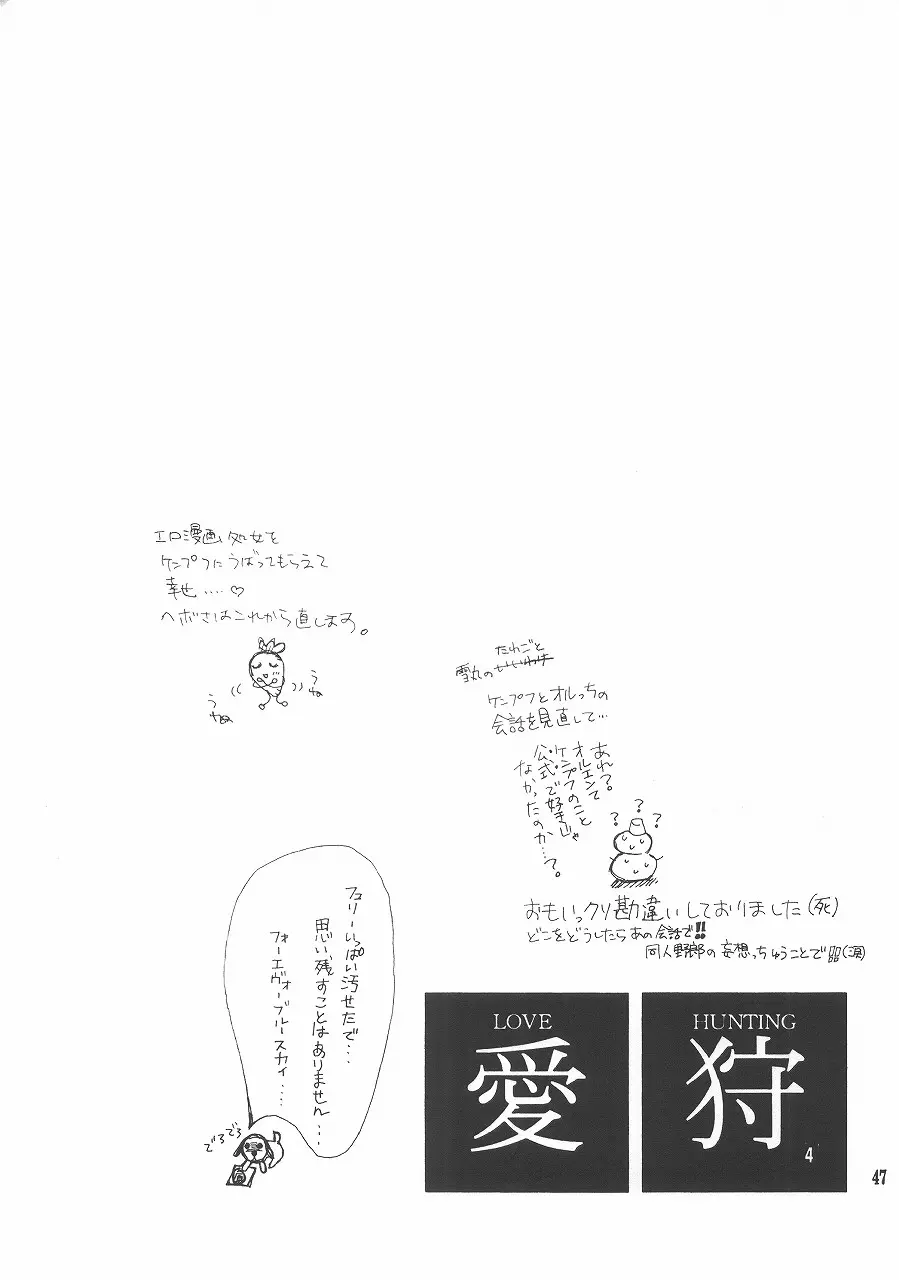 エロ漫画処女を
ケンプフにうばってもらえて
幸せ....♡
ヘボさはこれから直します。
うねうね
うねうね
たわごと
雪丸のいいわけ
ケンプフとオルっちの
会話を見直して...
あれ?
オルエンて
ケンプフのこと
公・式・で好きじゃ
なかったのか...?。
? ? ?
おもいっクソ勘違いしておりました(死)
どこをどうしたらあの会話で!!
同人野郎の妄想っちゅうことで
フュリーいっぱい汚せたで...
思い残すことはありません...
フォーエヴォーブルースカイ....
でろでろ
LOVE
愛
HUNTING
狩
4
47